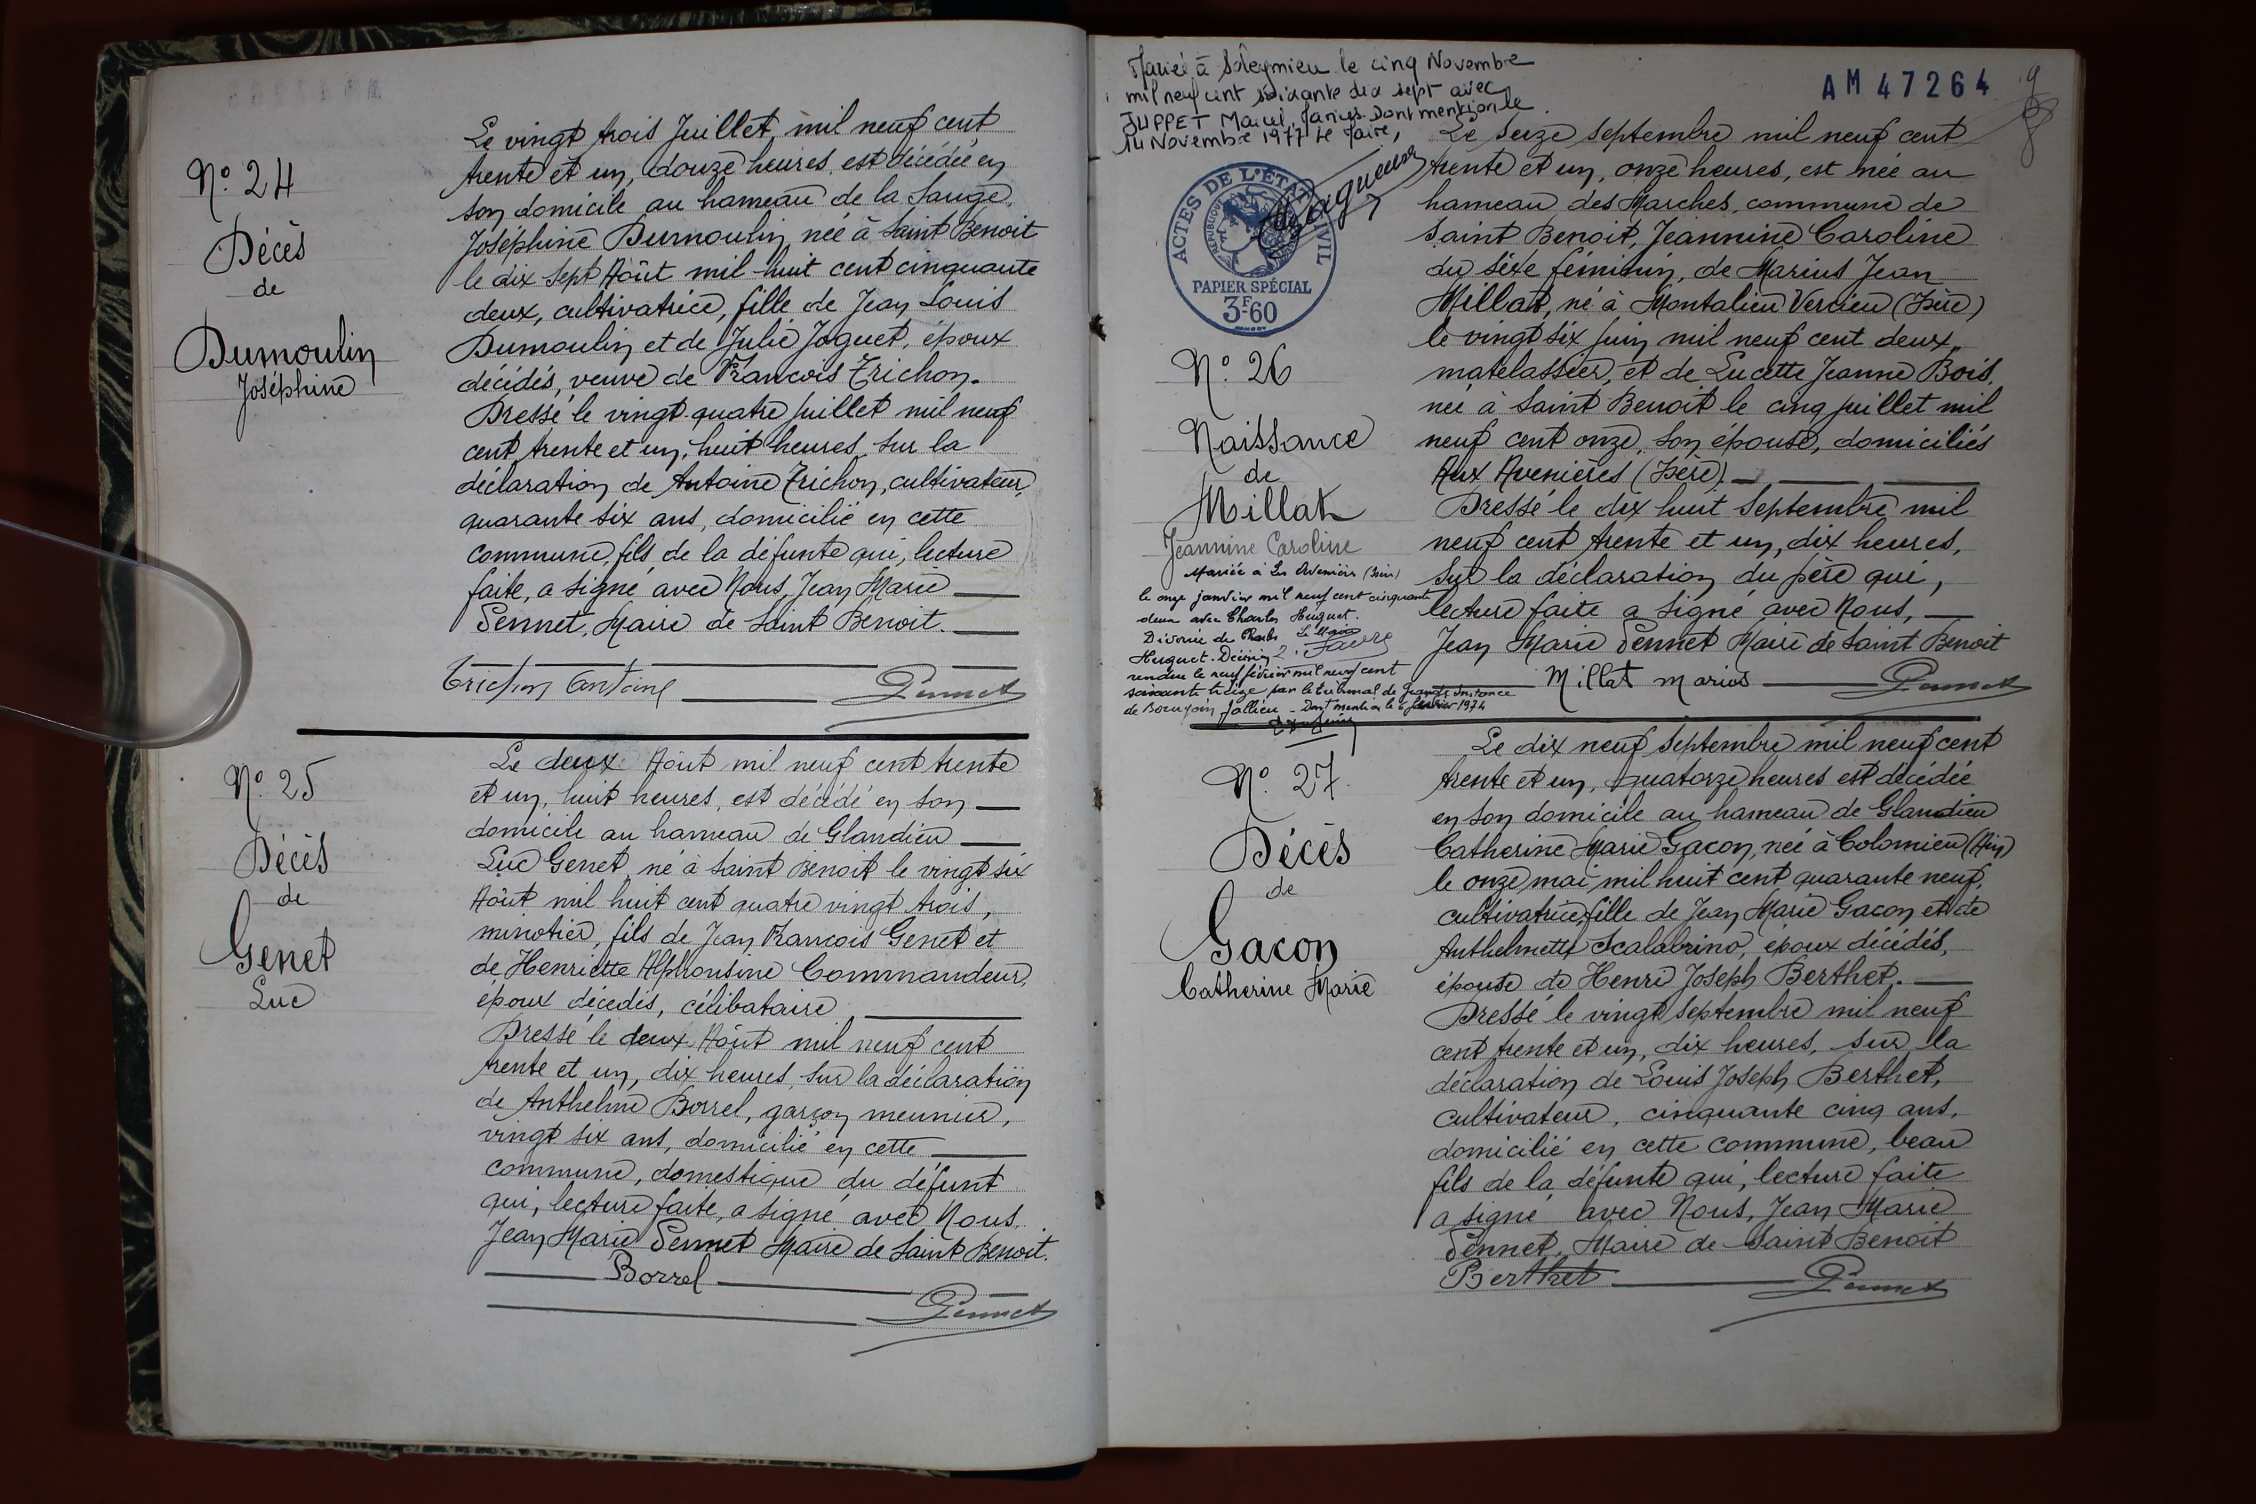 Nº 24
Décès
de
Dumoulin
Joséphine
Le vingt trois Juillet, mil neuf cent
trente et un, douze heures, est décédée en
son domicile au hameau de la Sauge,
Joséphine Dumoulin, née à Saint Benoit
le dix sept Août mil huit cent cinquante
deux, cultivatrice, fille de Jean Louis
Dumoulin et de Julie Joguet, époux
décédés, veuve de François Trichon.
Dressé le vingt-quatre Juillet mil neuf
cent trente et un, huit heures, sur la
déclaration de Antoine Trichon, cultivateur,
quarante six ans, domicilié en cette
commune, fils de la défunte qui, lecture
faite, a signé avec Nous, Jean Marie
Pennet, Maire de Saint Benoit.
Trichon Antoine Pennet
Nº 25
Décès
de
Genet
Luc
Le deux Août mil neuf cent trente
et un, huit heures, est décédé en son
domicile au hameau de Glandieu
Luc Genet, né à Saint Benoit le vingt six
Août mil huit cent quatre vingt trois,
minotier, fils de Jean François Genet et
de Henriette Alphonsine Commandeur,
époux décédés, célibataire
Dressé le deux Août mil neuf cent
trente et un, dix heures, sur la déclaration
de Anthelme Borrel, garçon meunier,
vingt six ans, domicilié en cette
commune, domestique du défunt
qui, lecture faite, a signé avec Nous,
Jean Marie Pennet Maire de Saint Benoit.
Borrel
Pennet
AM 47264
9
Mariée à Soleymieu le cinq Novembre
mil neuf cent soixante dix sept avec
JUPPET Marcel, Marius. Dont mention le
14 Novembre 1977 Le Maire,
ACTES DE L'ÉTAT CIVIL
PAPIER SPÉCIAL
3F60
Nº 26
Naissance
de
Millat
Jeannine Caroline
Mariée à Les Avenières (Isère)
le onze janvier mil neuf cent cinquante
deux avec Charles Huguet.
Divorcée de Charles Le Maire
Huguet. Décision
rendue le neuf février mil neuf cent
soixante treize par le tribunal de Grande Instance
de Bourgoin Jallieu - Dont mention le 6 février 1974
Le seize Septembre mil neuf cent
trente et un, onze heures, est née au
hameau des Marches, commune de
Saint Benoit, Jeannine Caroline
du sexe féminin, de Marius Jean
Millat, né à Montalieu Vercieu (Isère)
le vingt six Juin mil neuf cent deux,
matelassier, et de Lucette Jeanne Bois,
née à Saint Benoit le cinq Juillet mil
neuf cent onze, son épouse, domiciliés
Aux Avenières (Isère)
Dressé le dix huit Septembre mil
neuf cent trente et un, dix heures,
sur la déclaration du père qui,
lecture faite a signé avec Nous,
Jean Marie Pennet Maire de Saint Benoit
Millat Marius Pennet
Nº 27
Décès
de
Gacon
Catherine Marie
Le dix neuf Septembre mil neuf cent
trente et un, quatorze heures est décédée
en son domicile au hameau de Glandieu
Catherine Marie Gacon, née à Colomieu (Ain)
le onze mai mil huit cent quarante neuf,
cultivatrice, fille de Jean Marie Gacon et de
Anthelmette Scalabrino, époux décédés,
épouse de Henri Joseph Berthet.
Dressé le vingt Septembre mil neuf
cent trente et un, dix heures, sur la
déclaration de Louis Joseph Berthet,
cultivateur, cinquante cinq ans,
domicilié en cette commune, beau
fils de la défunte qui, lecture faite
a signé avec Nous, Jean Marie
Pennet, Maire de Saint Benoit
Berthet Pennet